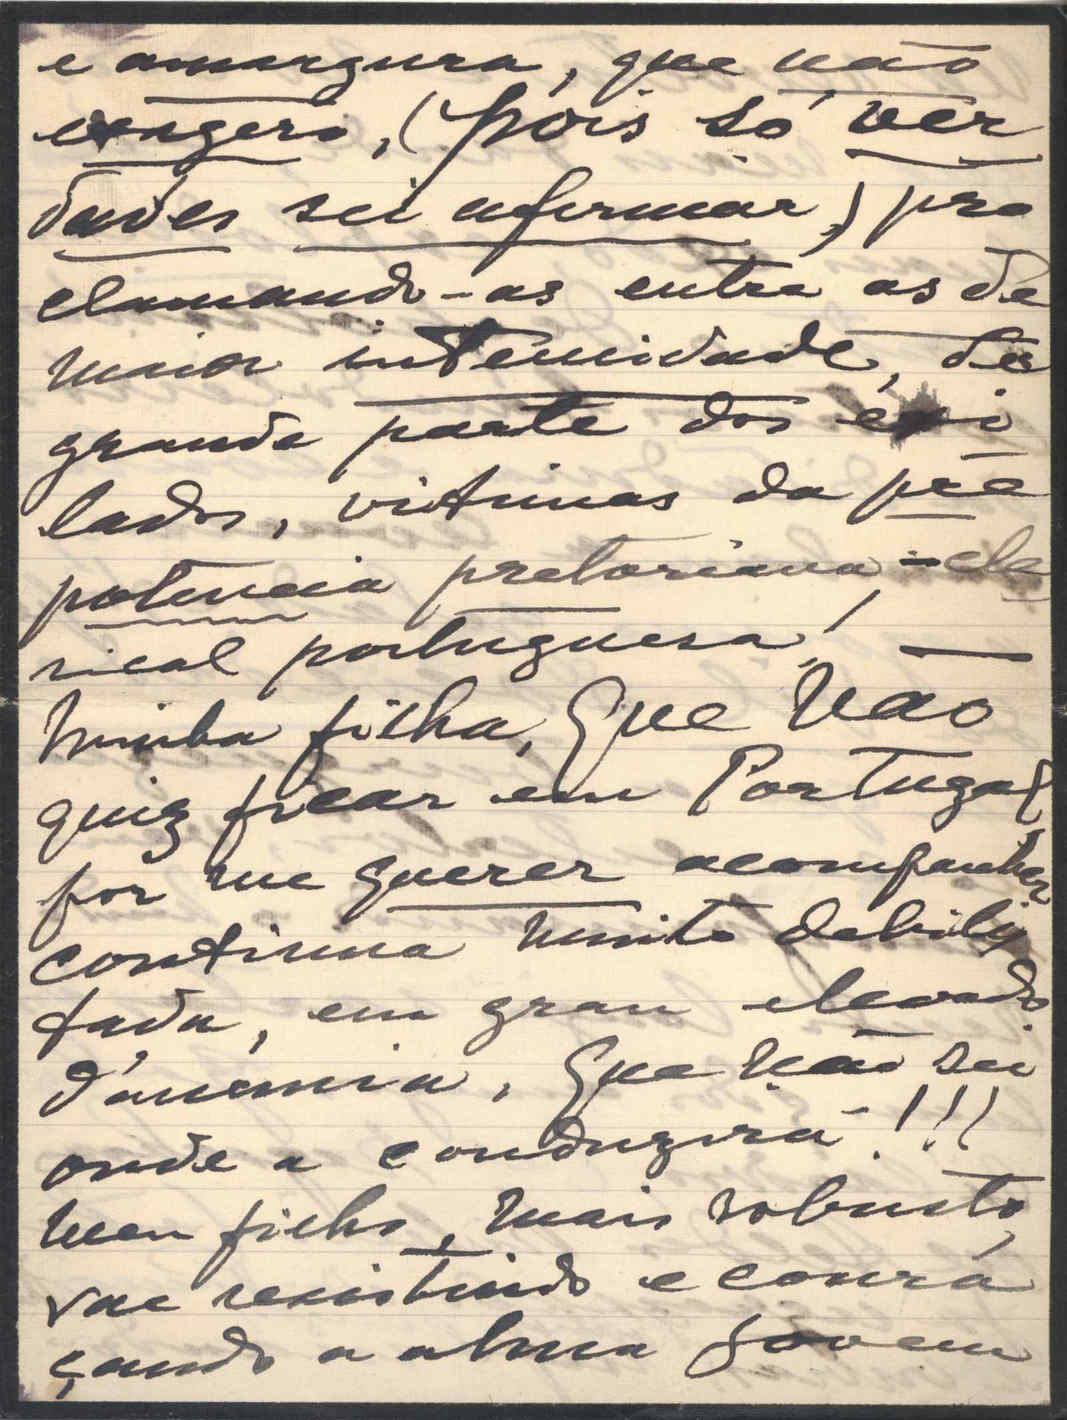 e amargura, que não
exagero, (pois só ver
dades sei afirmar,) pro
clamando-as entre as de
maior intensidade, da
grande parte dos exi
lados, victimas da pre
potencia pretoriana-cle
rical portuguesa! —
Minha filha, que não
quiz ficar em Portugal
por me querer acompanhar
continua muito debili
tada, em grau elevado
d'anemia, que não sei
onde a conduzirá!!!
Meu filho, mais robusto,
vae resistindo e coura
çando a alma jovem